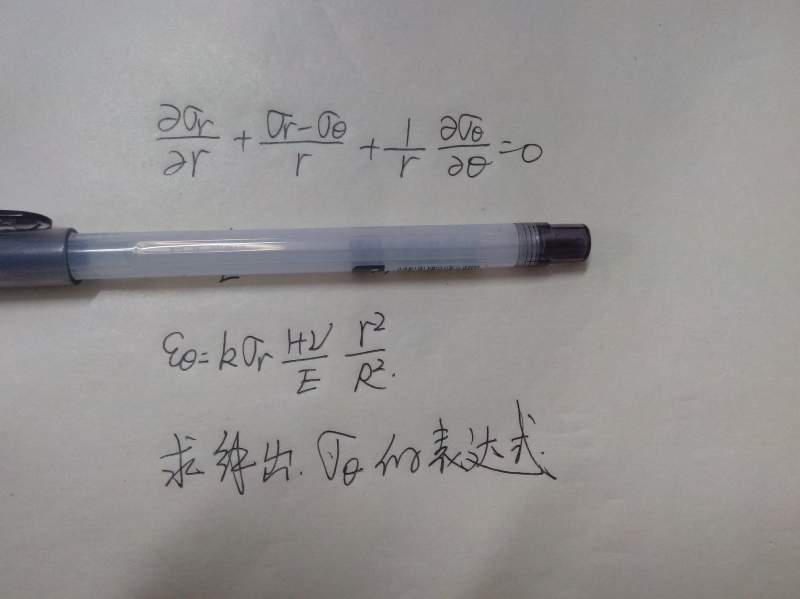 ∂σr/∂r + (σr-σθ)/r + 1/r ∂σθ/∂θ = 0
εθ = kσr (1+ν)/E r²/R².
求解出. σθ的表达式.